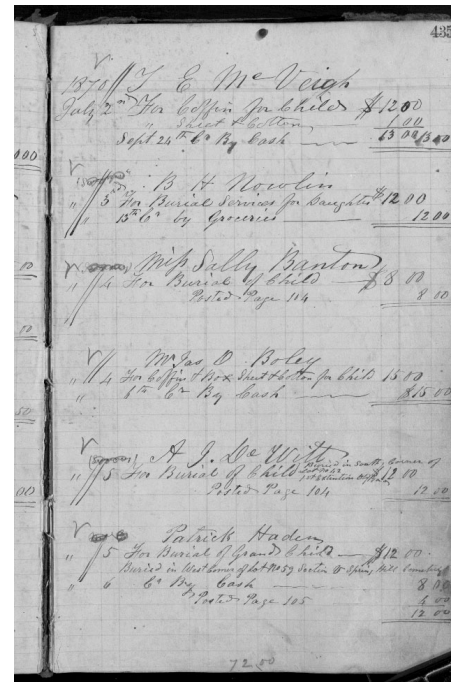 435
1870 T E McVeigh
July 2nd For Coffin for Child $12 00
" Sheet & Cotton 1 00
Sept 24th Cr By Cash 13 00 13 00
B H Nowlin
" 3rd For Burial Services for Daughter $12 00
" 13th Cr by Groceries 12 00
Miss Sally Banton
" 4 For Burial of Child $8 00
Posted Page 114 8 00
"
Mr Jas O. Boley
" 4 For Coffin & Box Sheet & Cotton for Child 15 00
" 6th Cr By Cash $15 00
A J. De Witt
Buried in South Corner of
" 5 For Burial of Child $12 00
Posted Page 104 12 00
Patrick Haden
" 5 For Burial of Grand Child $12 00
Buried in West Corner of Lot No 59 Section Spring Hill Cemetery
" 6 Cr By Cash 8 00
Posted Page 105 4 00
12 00
72 00